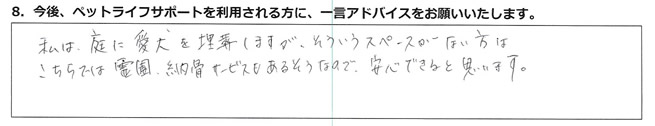 8. 今後、ペットライフサポートを利用される方に、一言アドバイスをお願いいたします。
私は、庭に愛犬を埋葬しますが、そういうスペースがない方は
こちらでは霊園、納骨サービスもあるそうなので、安心できると思います。